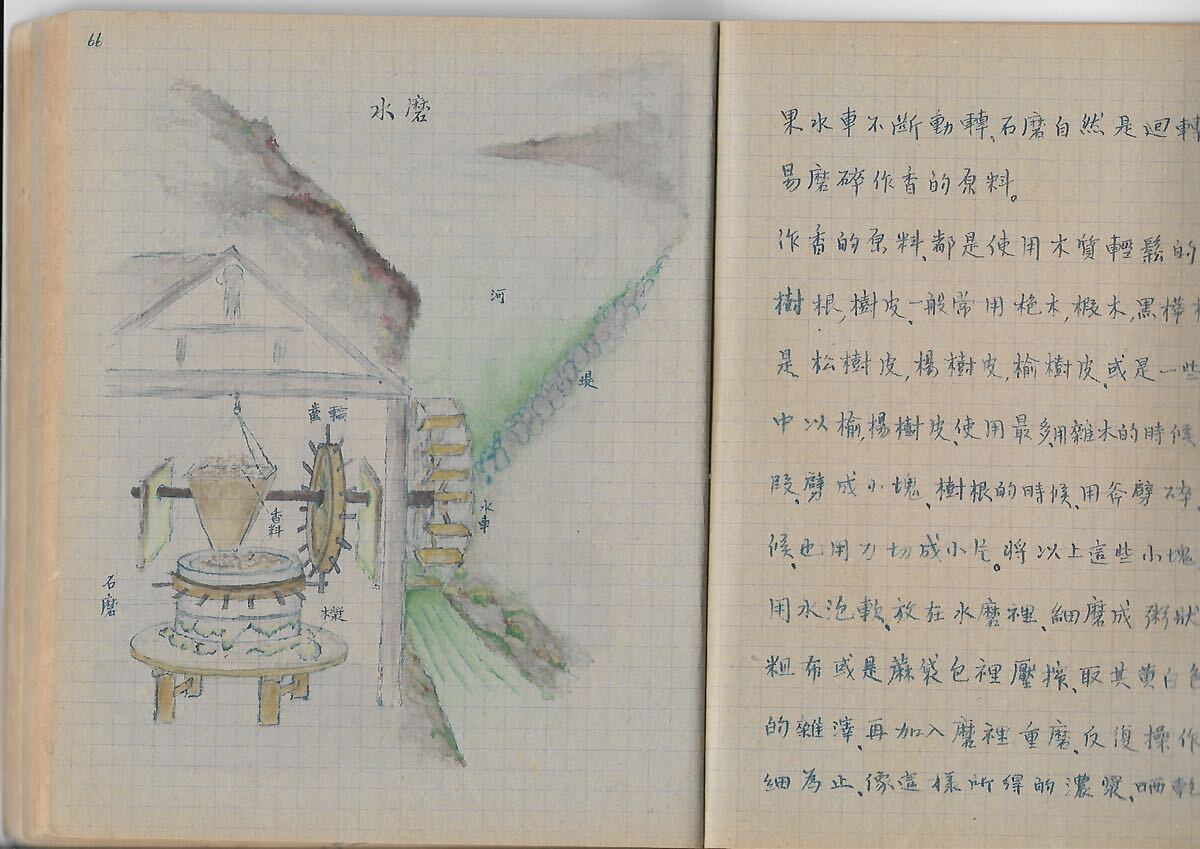 66
水磨
河
堤
齒輪
水車
香料
石磨
漿
果水車不斷動轉、石磨自然是迴轉
易磨碎作香的原料。
作香的原料、都是使用木質輕鬆的
樹根,樹皮、一般常用 木,椴木,黑樺木
是、松樹皮,楊樹皮,榆樹皮、或是一些
中以榆,楊樹皮、使用最多、用雜木的時候
段、劈成小塊、樹根的時候、用斧劈碎、
候、也用刀切成小片。將以上這些小塊
用水泡軟、放在水磨裡、細磨成粥狀
粗布或是蔴袋包裡壓搾、取其黄白色
的雜滓、再加入磨裡重磨、反復操作
細為止、像這樣所得的濃漿、晒乾